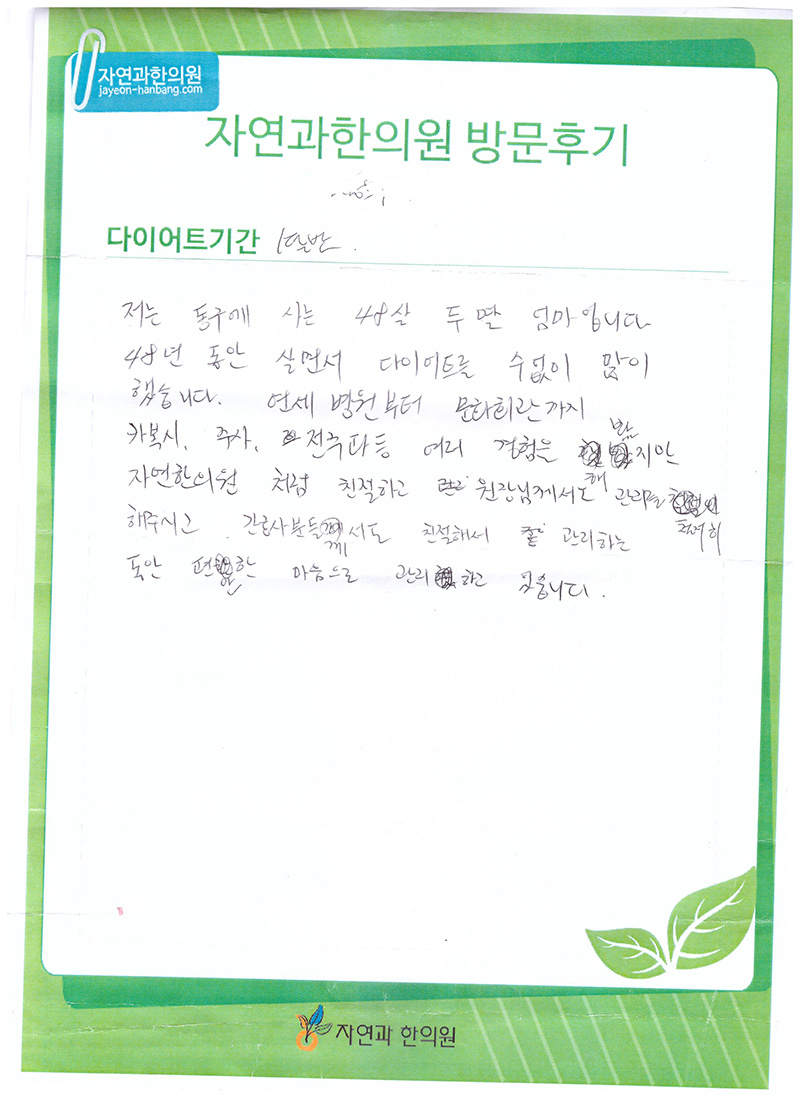 자연과한의원
jayeon-hanbang.com
자연과한의원 방문후기
다이어트기간 1달반.
저는 동구에 사는 48살 두 딸 엄마입니다
48년 동안 살면서 다이어트를 수없이 많이
했습니다. 연세병원부터 문화회관까지
카복시, 주사, 전주파등 여러 경험을 받지만
자연한의원 처럼 친절하고 원장님께서도 관리를
해주시고. 간호사분들께서도 친절해서 관리하는
동안 편안한 마음으로 관리하고 있습니다.
자연과 한의원